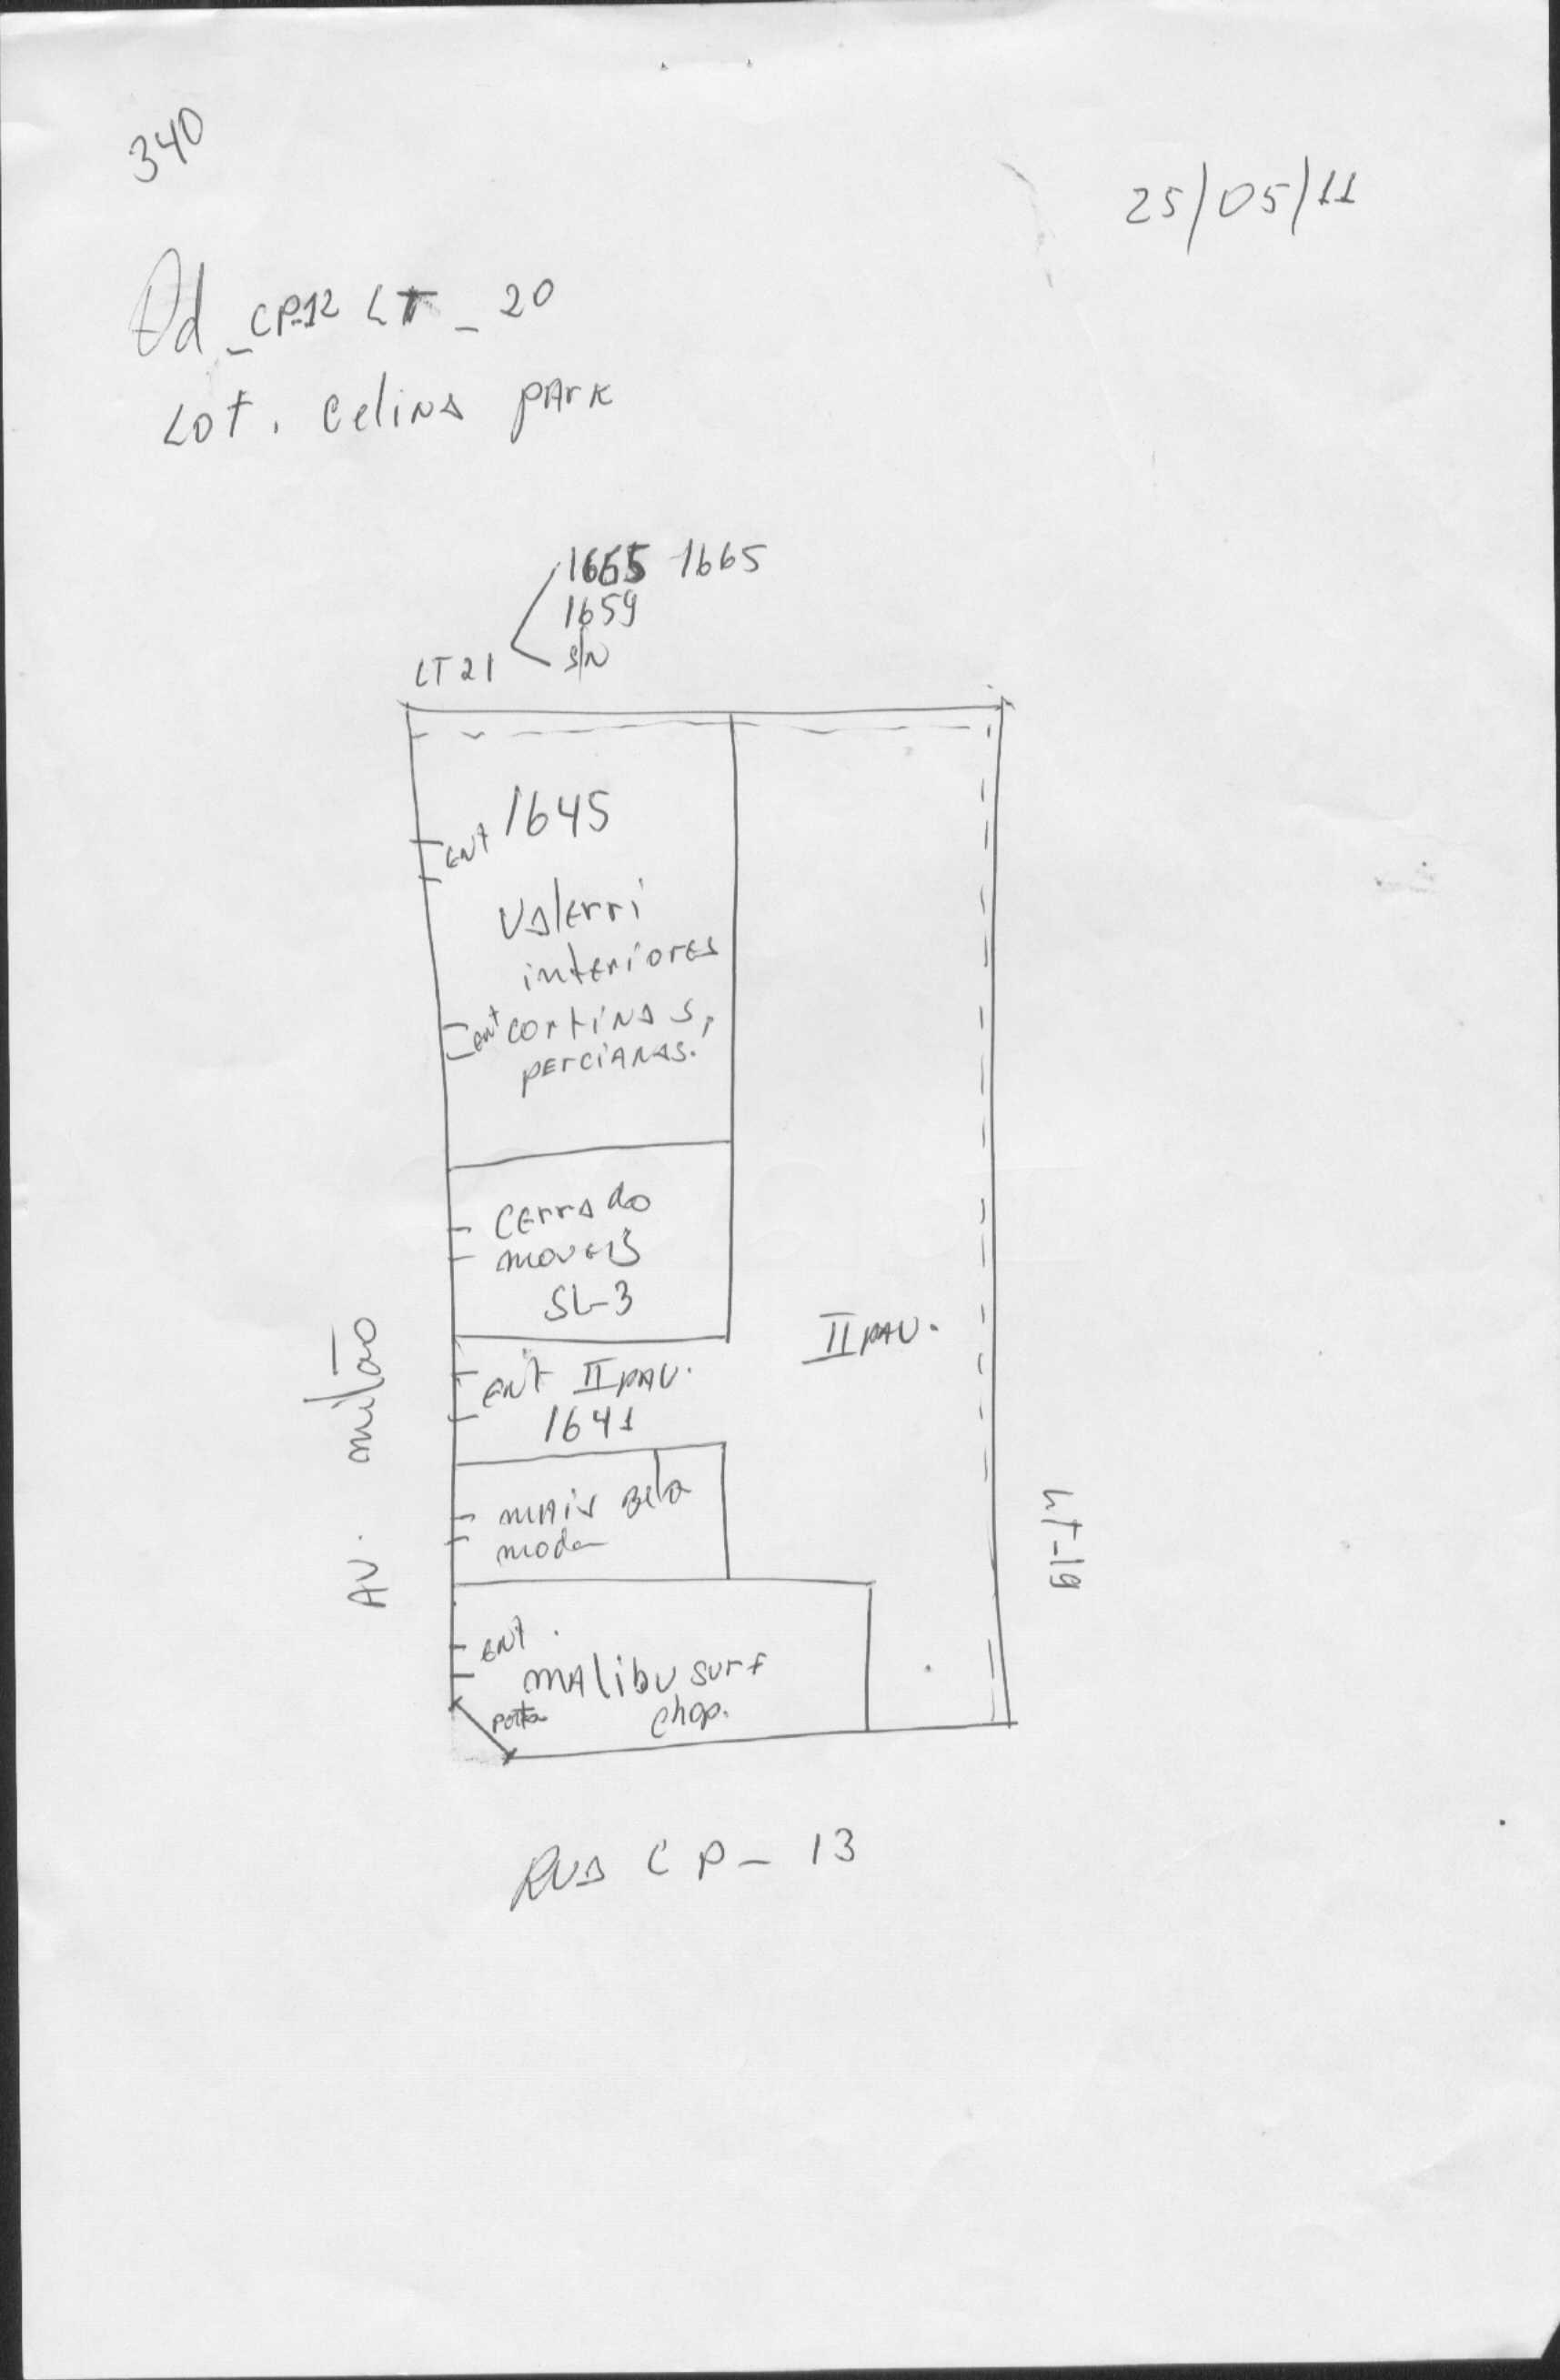 340
25/05/11
Qd_CP-12 LT_20
LOT. Celina PArK
1665 1665
1659
S/N
LT 21
1645
ENT
Valerri
interiores
ENT cortinas,
perciAnAs.
cerrado
moveis
SL-3
II PAV.
ENT II PAV.
1641
AV. milão
mAis Bela
moda
LT-19
ENT.
mAlibu surf
chop.
porta
RUA CP-13